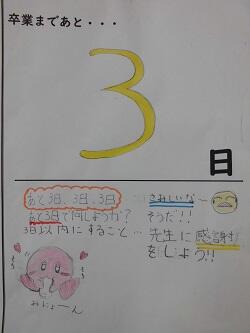 卒業まであと・・・
3
日
あと3日、3日、3日
あと3日で何しようか？
3日以内にすること…
さみしいな〜
そうだ！！
先生に感謝
をしよう！！